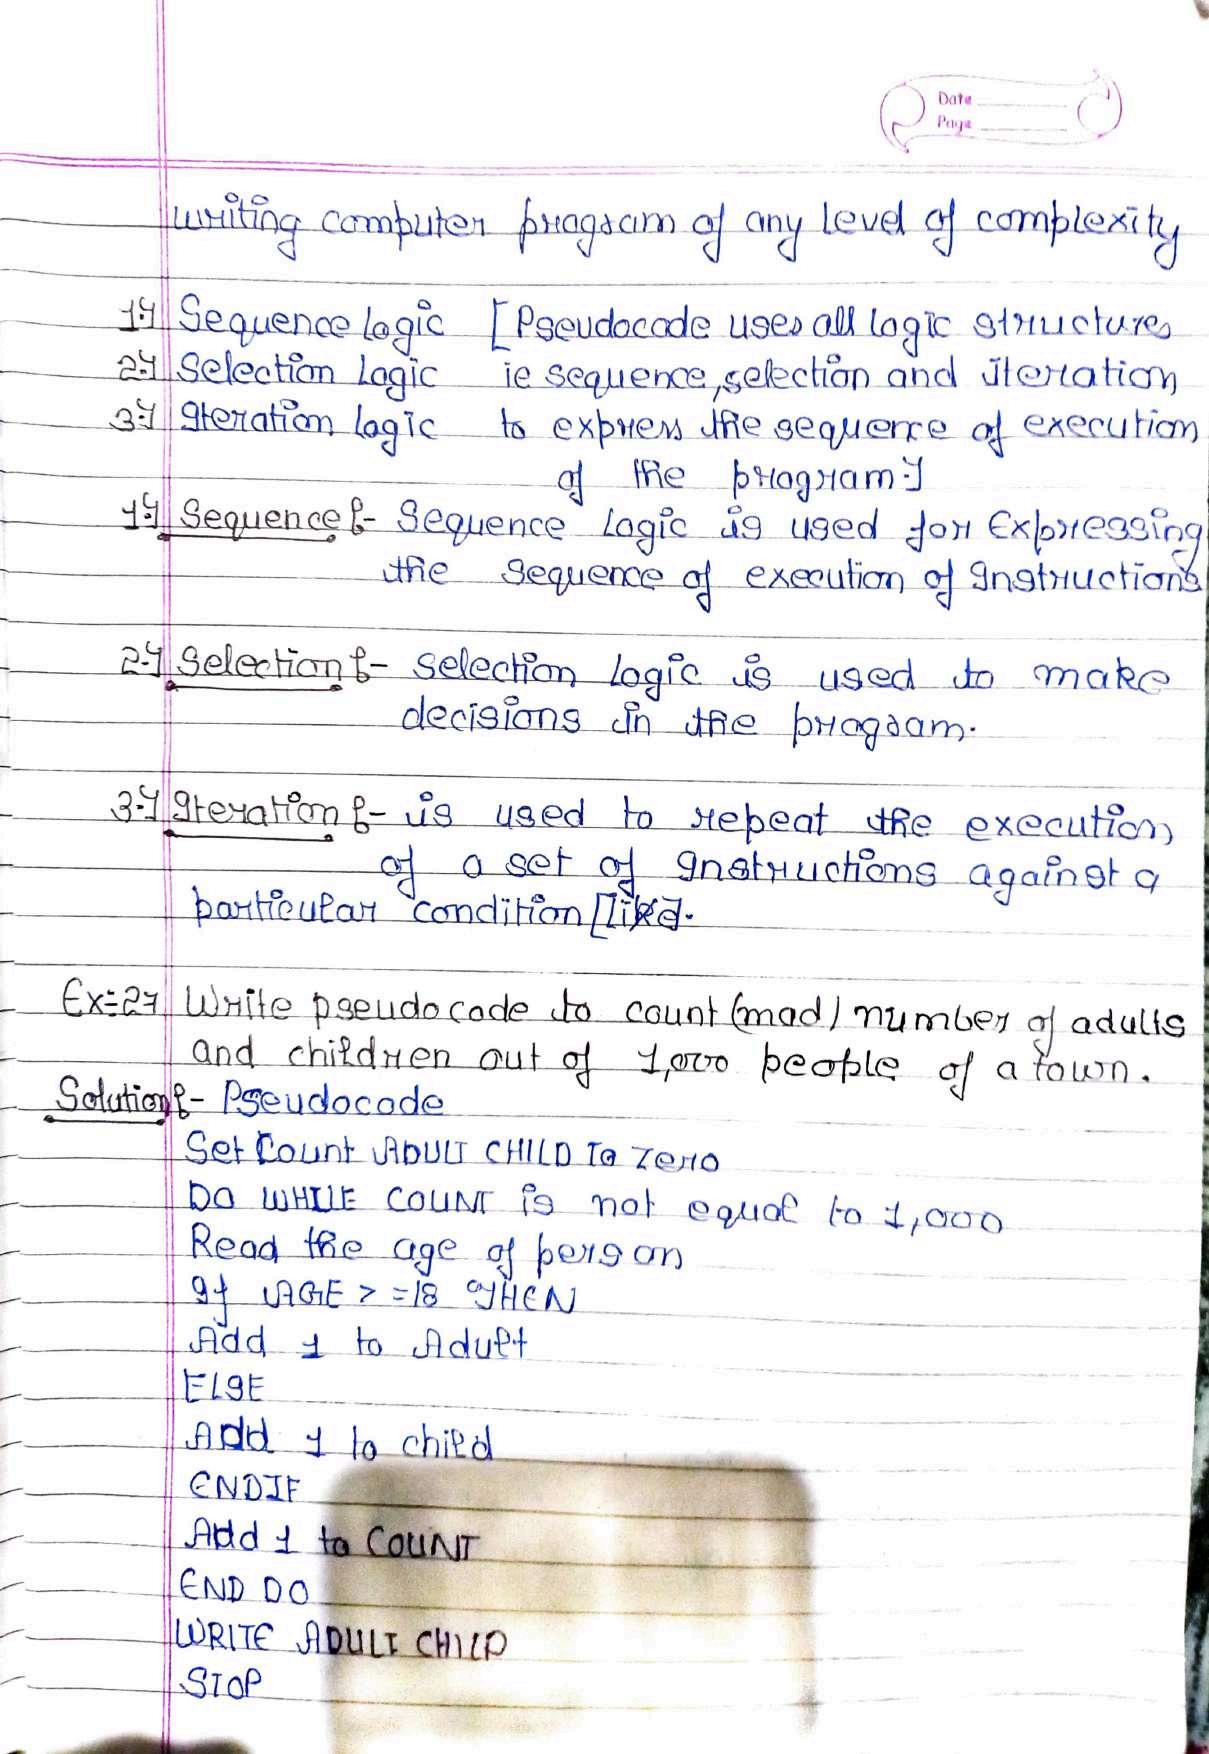 Date
Page
writing computer program of any level of complexity
1.} Sequence logic [Pseudocode uses all logic structures
2.} Selection Logic ie sequence, selection and iteration
3.} Iteration logic to express the sequence of execution
of the program.]
1.} Sequence :- Sequence Logic is used for Expressing
the sequence of execution of Instructions
2.} Selection :- selection logic is used to make
decisions in the program.
3.} Iteration :- is used to repeat the execution
of a set of Instructions against a
particular condition
Ex:-2} Write pseudocode to count (mad) number of adults
and children out of 1,000 people of a town.
Solution :- Pseudocode
Set Count ADULT CHILD To Zero
DO WHILE COUNT is not equal to 1,000
Read the age of person
If AGE >=18 THEN
Add 1 to Adult
ELSE
Add 1 to child
ENDIF
Add 1 to COUNT
END DO
WRITE ADULT CHILD
STOP